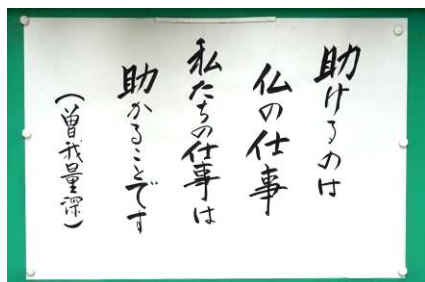 助けるのは
仏の仕事
私たちの仕事は
助かることです
（曽我量深）